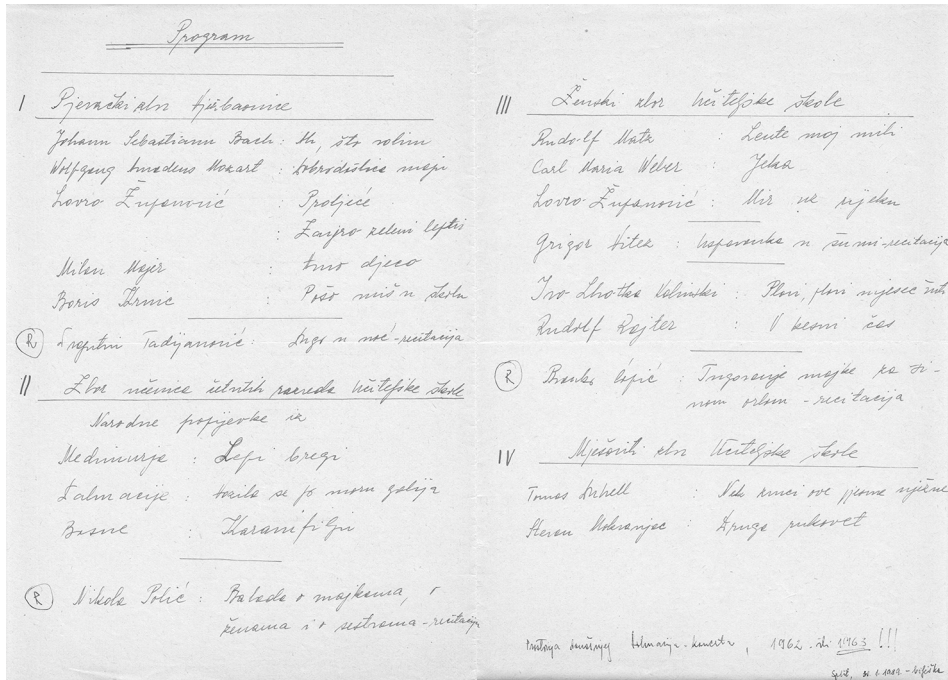 Program
I Pjevački zbor Vježbaonice
Johann Sebastiann Bach : Ah, što volim
Wolfgang Amadeus Mozart : Dobrodošlica maju
Lovro Županović : Proljeće
: Zaigro zeleni leptir
Milan Majer : Amo djeco
Boris Krnic : Pošo miš u školu
R Dragutin Tadijanović : Dugo u noć - recitacija
II Zbor učenica četvrtih razreda Učiteljske škole
Narodne popijevke iz
Međimurja : Lepi bregi
Dalmacije : Vozila se po moru galija
Bosne : Karanfilju
R Nikola Polić : Balada o majkama, o
ženama i o sestrama - recitacija
III Ženski zbor Učiteljske škole
Rudolf Matz : Lente moj mili
Carl Maria Weber : Jeka
Lovro Županović : Mir na rijeku
Grigor Vitez : Uspavanka u šumi - recitacija
Ivo Lhotka Kalinski : Plovi, plovi mjeseč
Rudolf Rajter : V jesni čas
R Branko Ćopić : Tugovanje majke za si-
nom orlom - recitacija
IV Mješoviti zbor Učiteljske škole
Tomas : Nek zvuci ove pjesme nježne
Stevan Mokranjac : Druga rukovet
koncerta, 1962 ili 1963 !!!
Split,